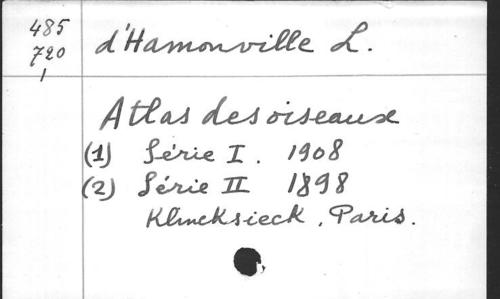 485
720
1
d'Hamonville L.
Atlas des oiseaux
(1) Série I. 1908
(2) Série II 1898
Klincksieck, Paris.